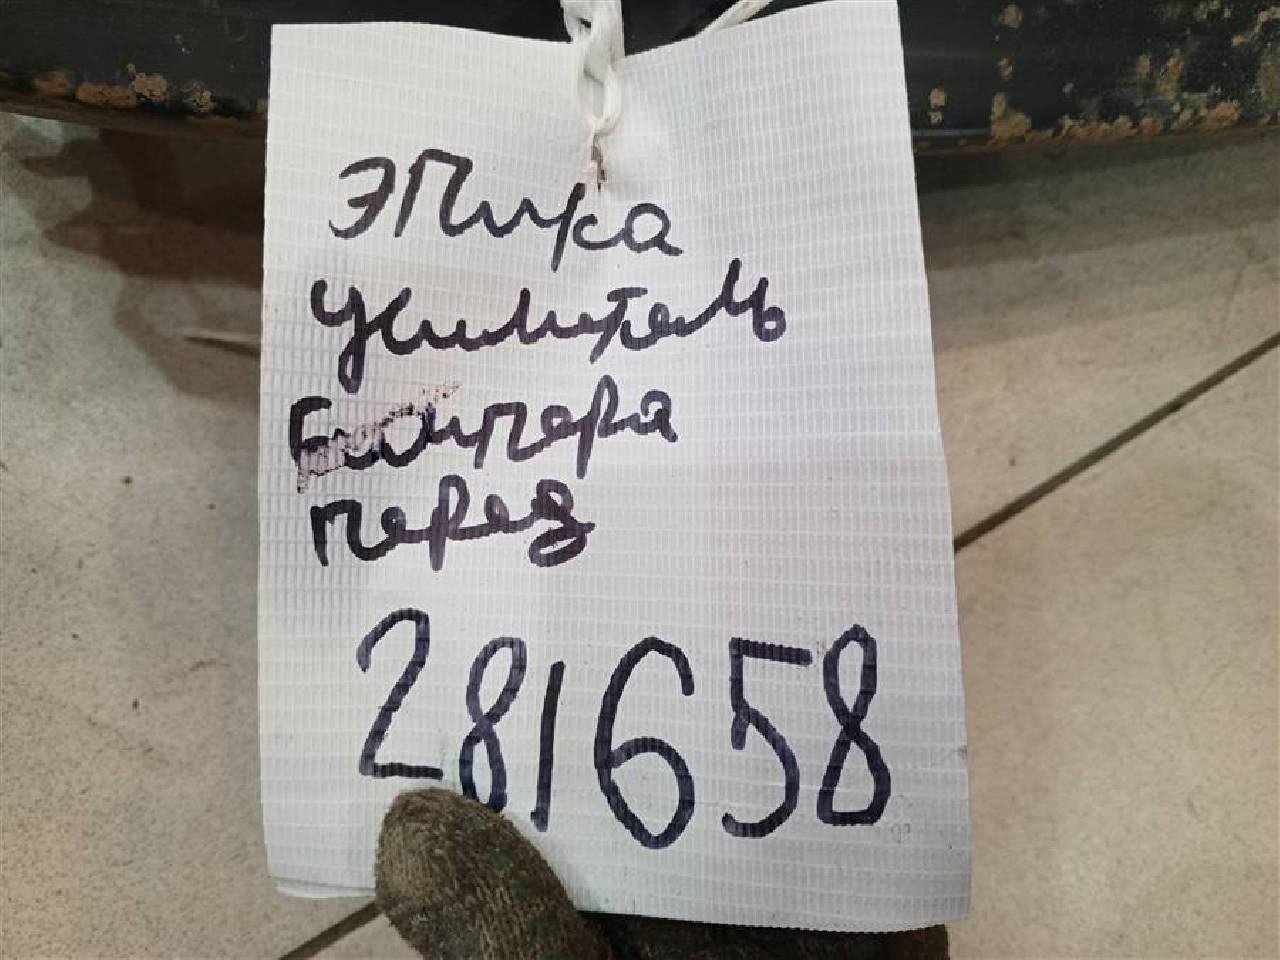 Эпика
Усилитель
Бампера
перед
281658